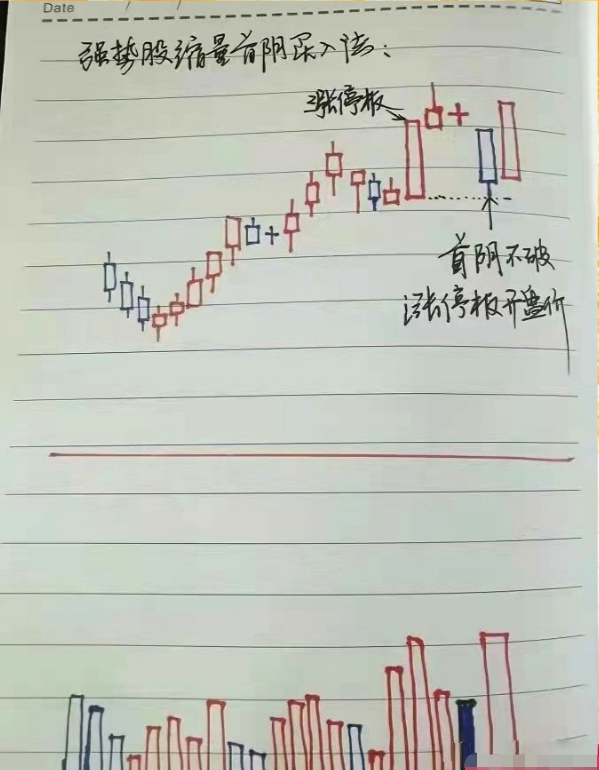 Date
强势股缩量首阴买入法:
涨停板
首阴不破
涨停板开盘价